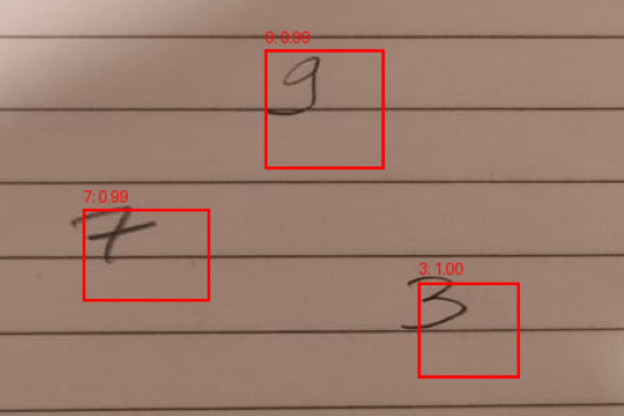 9: 0.99
9
7: 0.99
7
3: 1.00
3